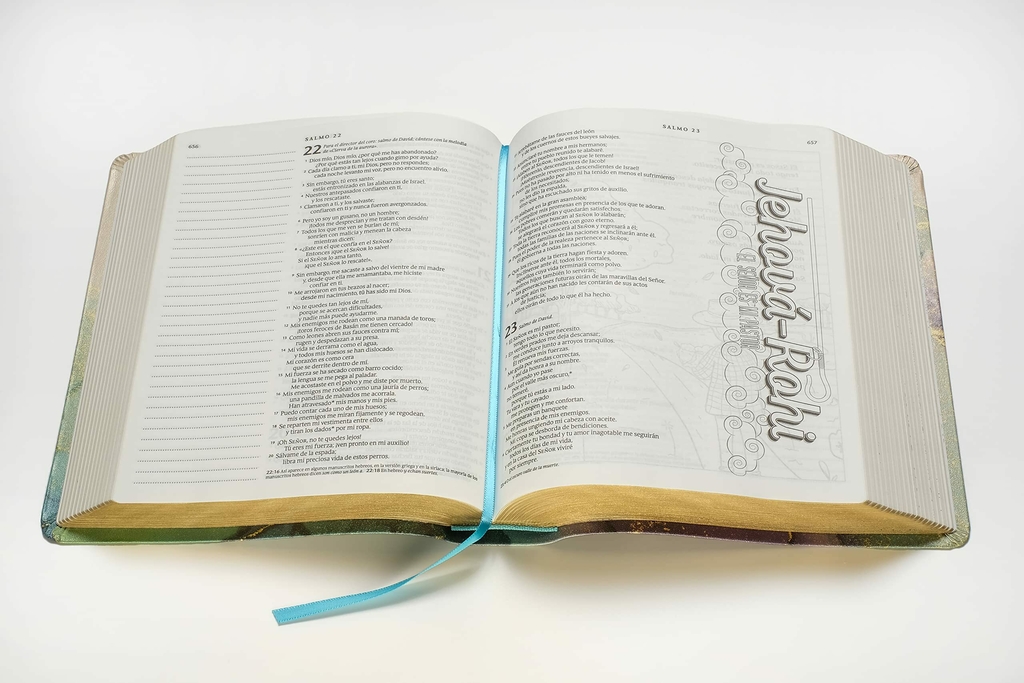 656
SALMO 22
22 Para el director del coro: salmo de David; cántese con la melodía
de «Cierva de la aurora».
1 Dios mío, Dios mío, ¿por qué me has abandonado?
¿Por qué estás tan lejos cuando gimo por ayuda?
2 Cada día clamo a ti, mi Dios, pero no respondes;
cada noche levanto mi voz, pero no encuentro alivio.
3 Sin embargo, tú eres santo;
estás entronizado en las alabanzas de Israel.
4 Nuestros antepasados confiaron en ti,
y los rescataste.
5 Clamaron a ti, y los salvaste;
confiaron en ti y nunca fueron avergonzados.
6 Pero yo soy un gusano, no un hombre;
¡todos me desprecian y me tratan con desdén!
7 Todos los que me ven se burlan de mí;
sonríen con malicia y menean la cabeza
mientras dicen:
8 «¿Este es el que confía en el SEÑOR?
Entonces ¡que el SEÑOR lo salve!
Si el SEÑOR lo ama tanto,
¡que el SEÑOR lo rescate!».
9 Sin embargo, me sacaste a salvo del vientre de mi madre
y, desde que ella me amamantaba, me hiciste
confiar en ti.
10 Me arrojaron en tus brazos al nacer;
desde mi nacimiento, tú has sido mi Dios.
11 No te quedes tan lejos de mí,
porque se acercan dificultades,
y nadie más puede ayudarme.
12 Mis enemigos me rodean como una manada de toros;
¡toros feroces de Basán me tienen cercado!
13 Como leones abren sus fauces contra mí;
rugen y despedazan a su presa.
14 Mi vida se derrama como el agua,
y todos mis huesos se han dislocado.
Mi corazón es como cera
que se derrite dentro de mí.
15 Mi fuerza se ha secado como barro cocido;
la lengua se me pega al paladar.
Me acostaste en el polvo y me diste por muerto.
16 Mis enemigos me rodean como una jauría de perros;
una pandilla de malvados me acorrala.
Han atravesado* mis manos y mis pies.
17 Puedo contar cada uno de mis huesos;
mis enemigos me miran fijamente y se regodean.
18 Se reparten mi vestimenta entre ellos
y tiran los dados* por mi ropa.
19 ¡Oh SEÑOR, no te quedes lejos!
Tú eres mi fuerza; ¡ven pronto en mi auxilio!
20 Sálvame de la espada;
libra mi preciosa vida de estos perros.
22:16 Así aparece en algunos manuscritos hebreos, en la versión griega y en la siríaca; la mayoría de los
manuscritos hebreos dicen son como un león a. 22:18 En hebreo y echan suertes.
SALMO 23
657
Arrebátame de las fauces del león
y de los cuernos de estos bueyes salvajes.
Anunciaré tu nombre a mis hermanos;
entre tu pueblo reunido te alabaré.
¡Alaben al SEÑOR, todos los que le temen!
¡Hónrenlo, descendientes de Jacob!
¡Muéstrenle reverencia, descendientes de Israel!
Pues no ha pasado por alto ni ha tenido en menos el sufrimiento
de los necesitados;
no les dio la espalda,
sino que ha escuchado sus gritos de auxilio.
Te alabaré en la gran asamblea;
cumpliré mis promesas en presencia de los que te adoran.
Los pobres comerán y quedarán satisfechos;
todos los que buscan al SEÑOR lo alabarán;
se alegrará el corazón con gozo eterno.
Toda la tierra reconocerá al SEÑOR y regresará a él;
todas las familias de las naciones se inclinarán ante él.
Pues el poder de la realeza pertenece al SEÑOR;
él gobierna a todas las naciones.
Que los ricos de la tierra hagan fiesta y adoren;
inclínense ante él, todos los mortales,
aquellos cuya vida terminará como polvo.
Nuestros hijos también lo servirán;
las generaciones futuras oirán de las maravillas del Señor.
A los que aún no han nacido les contarán de sus actos
de justicia;
ellos oirán de todo lo que él ha hecho.
23 Salmo de David.
El SEÑOR es mi pastor;
tengo todo lo que necesito.
En verdes prados me deja descansar;
me conduce junto a arroyos tranquilos.
Él renueva mis fuerzas.
Me guía por sendas correctas,
y así da honra a su nombre.
Aun cuando yo pase
por el valle más oscuro,*
no temeré,
porque tú estás a mi lado.
Tu vara y tu cayado
me protegen y me confortan.
Me preparas un banquete
en presencia de mis enemigos.
Me honras ungiendo mi cabeza con aceite.
Mi copa se desborda de bendiciones.
Ciertamente tu bondad y tu amor inagotable me seguirán
todos los días de mi vida,
y en la casa del SEÑOR viviré
por siempre.
valle de la muerte.
Jehová-Rohi
EL SEÑOR ES MI PASTOR